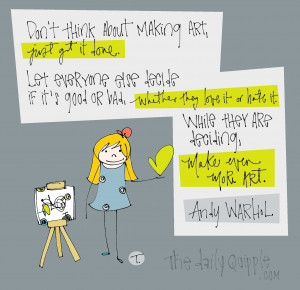 Don't think about making art,
just get it done.
Let everyone else decide
if it's good or bad,
whether they love it or hate it.
While they are
deciding,
make even
more art.
Andy Warhol
the daily quipple
.com